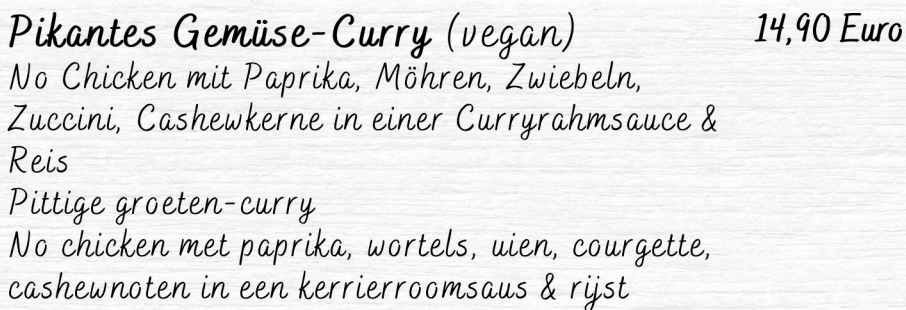 Pikantes Gemüse-Curry (vegan) 14,90 Euro
No Chicken mit Paprika, Möhren, Zwiebeln,
Zuccini, Cashewkerne in einer Curryrahmsauce &
Reis
Pittige groeten-curry
No chicken met paprika, wortels, uien, courgette,
cashewnoten in een kerrierroomsaus & rijst